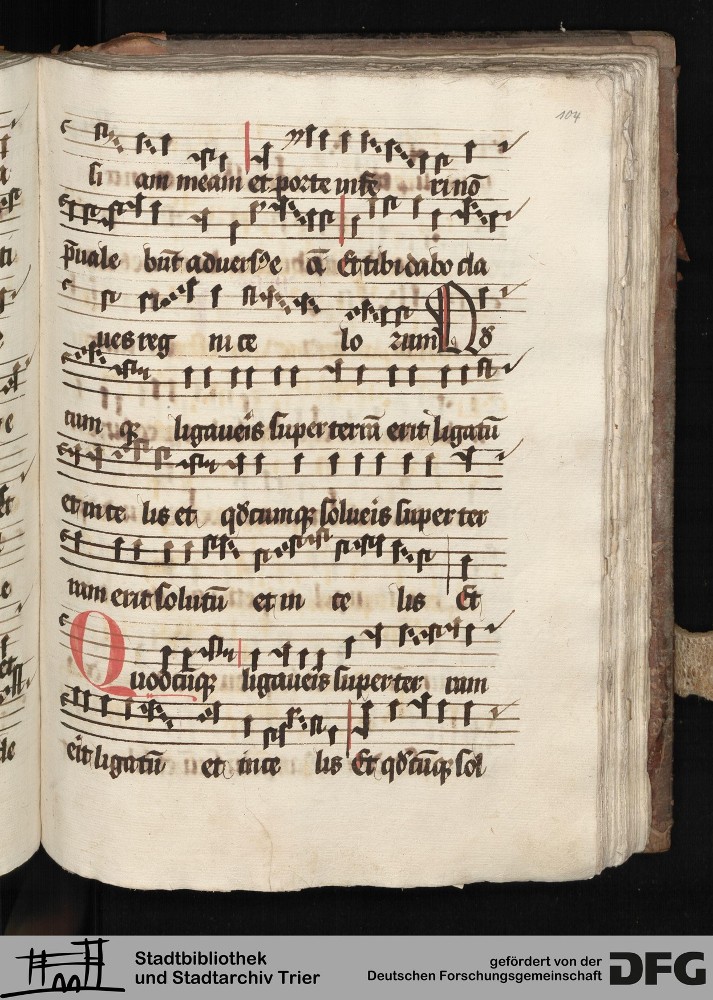 104
si am meam et porte infe ri nō
p̄uale būt aduersꝰ e ā Et tibi dabo cla
ues reg ni ce lo rum Qd̛
cum qꝫ ligaueis super terrā erit ligatū
et in ce lis et qd̛cumqꝫ solueis super ter
ram erit solutū et in ce lis Et
Quodcūqꝫ ligaueis super ter ram
eit ligatū et in ce lis Et qd̛cūqꝫ sol
Stadtbibliothek
und Stadtarchiv Trier
gefördert von der
Deutschen Forschungsgemeinschaft
DFG